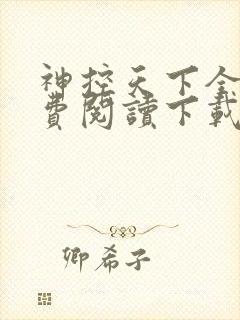 神控天下全
費閱讀下載
卿希子